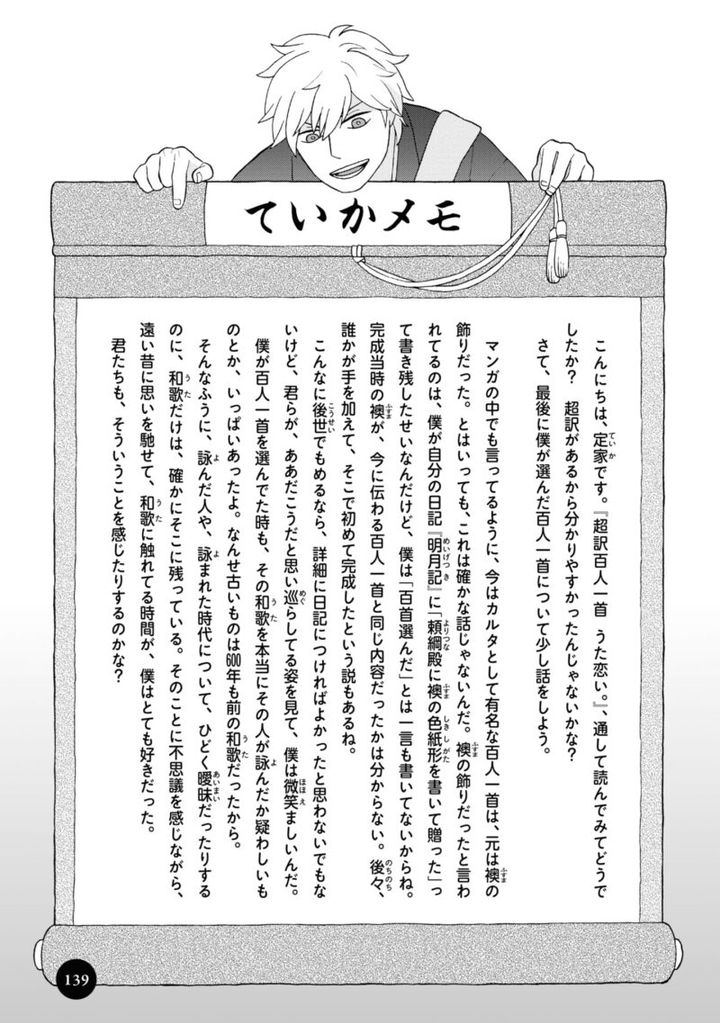 ていかメモ
こんにちは、定家です。『超訳百人一首 うた恋い。』、通して読んでみてどうで
したか? 超訳があるから分かりやすかったんじゃないかな?
さて、最後に僕が選んだ百人一首について少し話をしよう。
マンガの中でも言ってるように、今はカルタとして有名な百人一首は、元は襖の
飾りだった。とはいっても、これは確かな話じゃないんだ。襖の飾りだったと言わ
れてるのは、僕が自分の日記『明月記』に「頼綱殿に襖の色紙形を書いて贈った」っ
て書き残したせいなんだけど、僕は「百首選んだ」とは一言も書いてないからね。
完成当時の襖が、今に伝わる百人一首と同じ内容だったかは分からない。後々、
誰かが手を加えて、そこで初めて完成したという説もあるね。
こんなに後世でもめるなら、詳細に日記につければよかったと思わないでもな
いけど、君らが、ああだこうだと思い巡らしてる姿を見て、僕は微笑ましいんだ。
僕が百人一首を選んでた時も、その和歌を本当にその人が詠んだか疑わしいも
のとか、いっぱいあったよ。なんせ古いものは600年も前の和歌だったから。
そんなふうに、詠んだ人や、詠まれた時代について、ひどく曖昧だったりする
のに、和歌だけは、確かにそこに残っている。そのことに不思議を感じながら、
遠い昔に思いを馳せて、和歌に触れてる時間が、僕はとても好きだった。
君たちも、そういうことを感じたりするのかな?
139